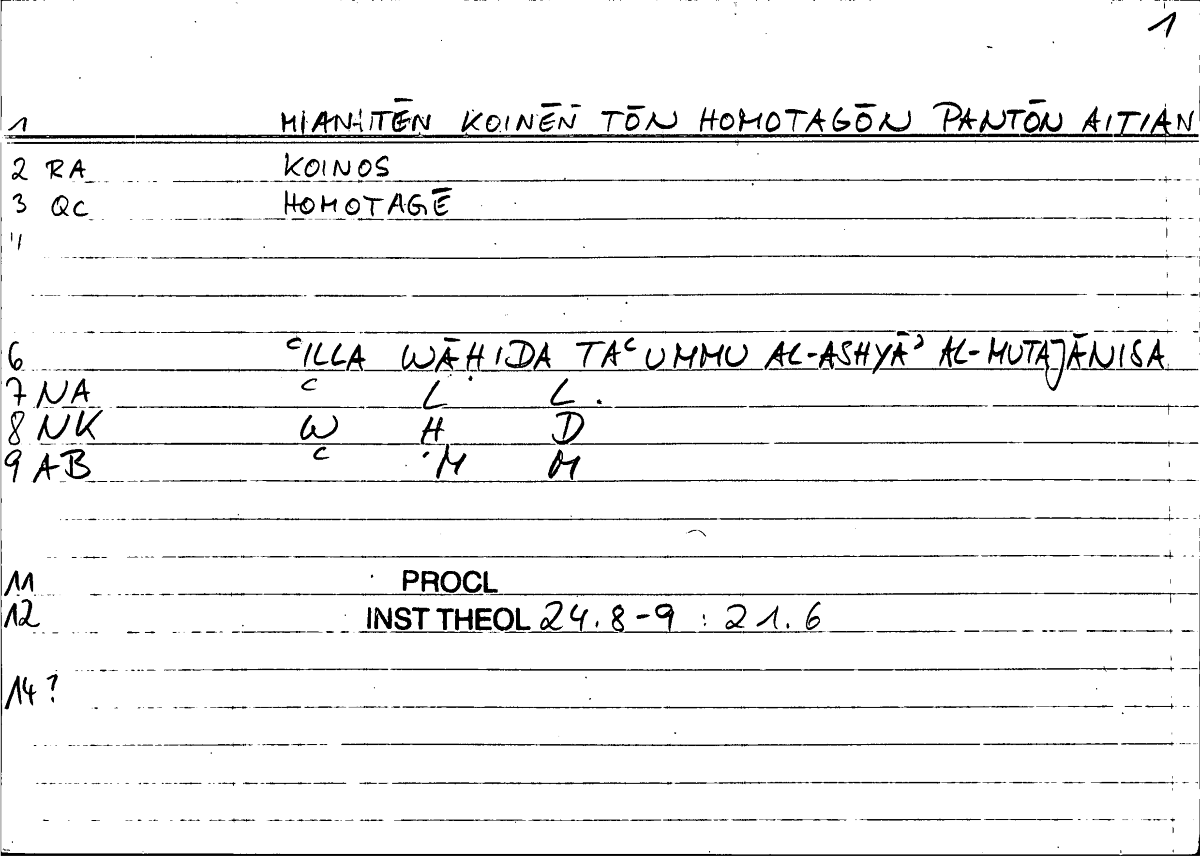 1
1 MIAN HTĒN KOINĒN TŌN HOMOTAGŌN PANTŌN AITIAN
2 RA KOINOS
3 QC HOMOTAGĒ
4
6 ʿILLA WĀḤIDA TAʿUMMU AL-ASHYĀʾ AL-MUTAJĀNISA
7 NA ʿ L L
8 NK W Ḥ D
9 AB ʿ M M
11 PROCL
12 INST THEOL 24.8-9 : 21.6
14 ?